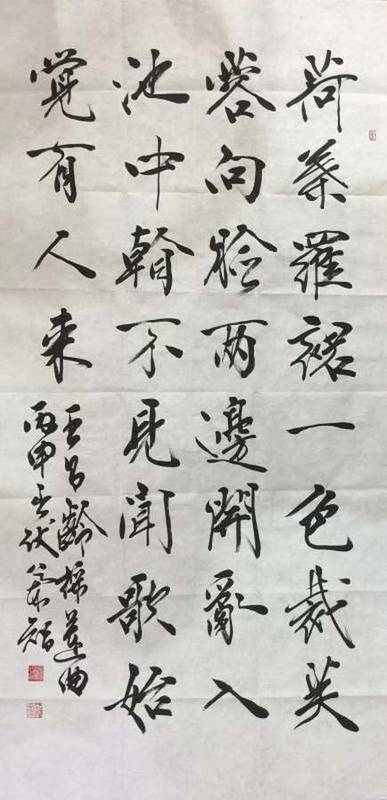 荷葉羅裙一色裁芙
蓉向臉兩邊開亂入
池中看不見聞歌始
覺有人来
王昌齡採蓮曲
丙申